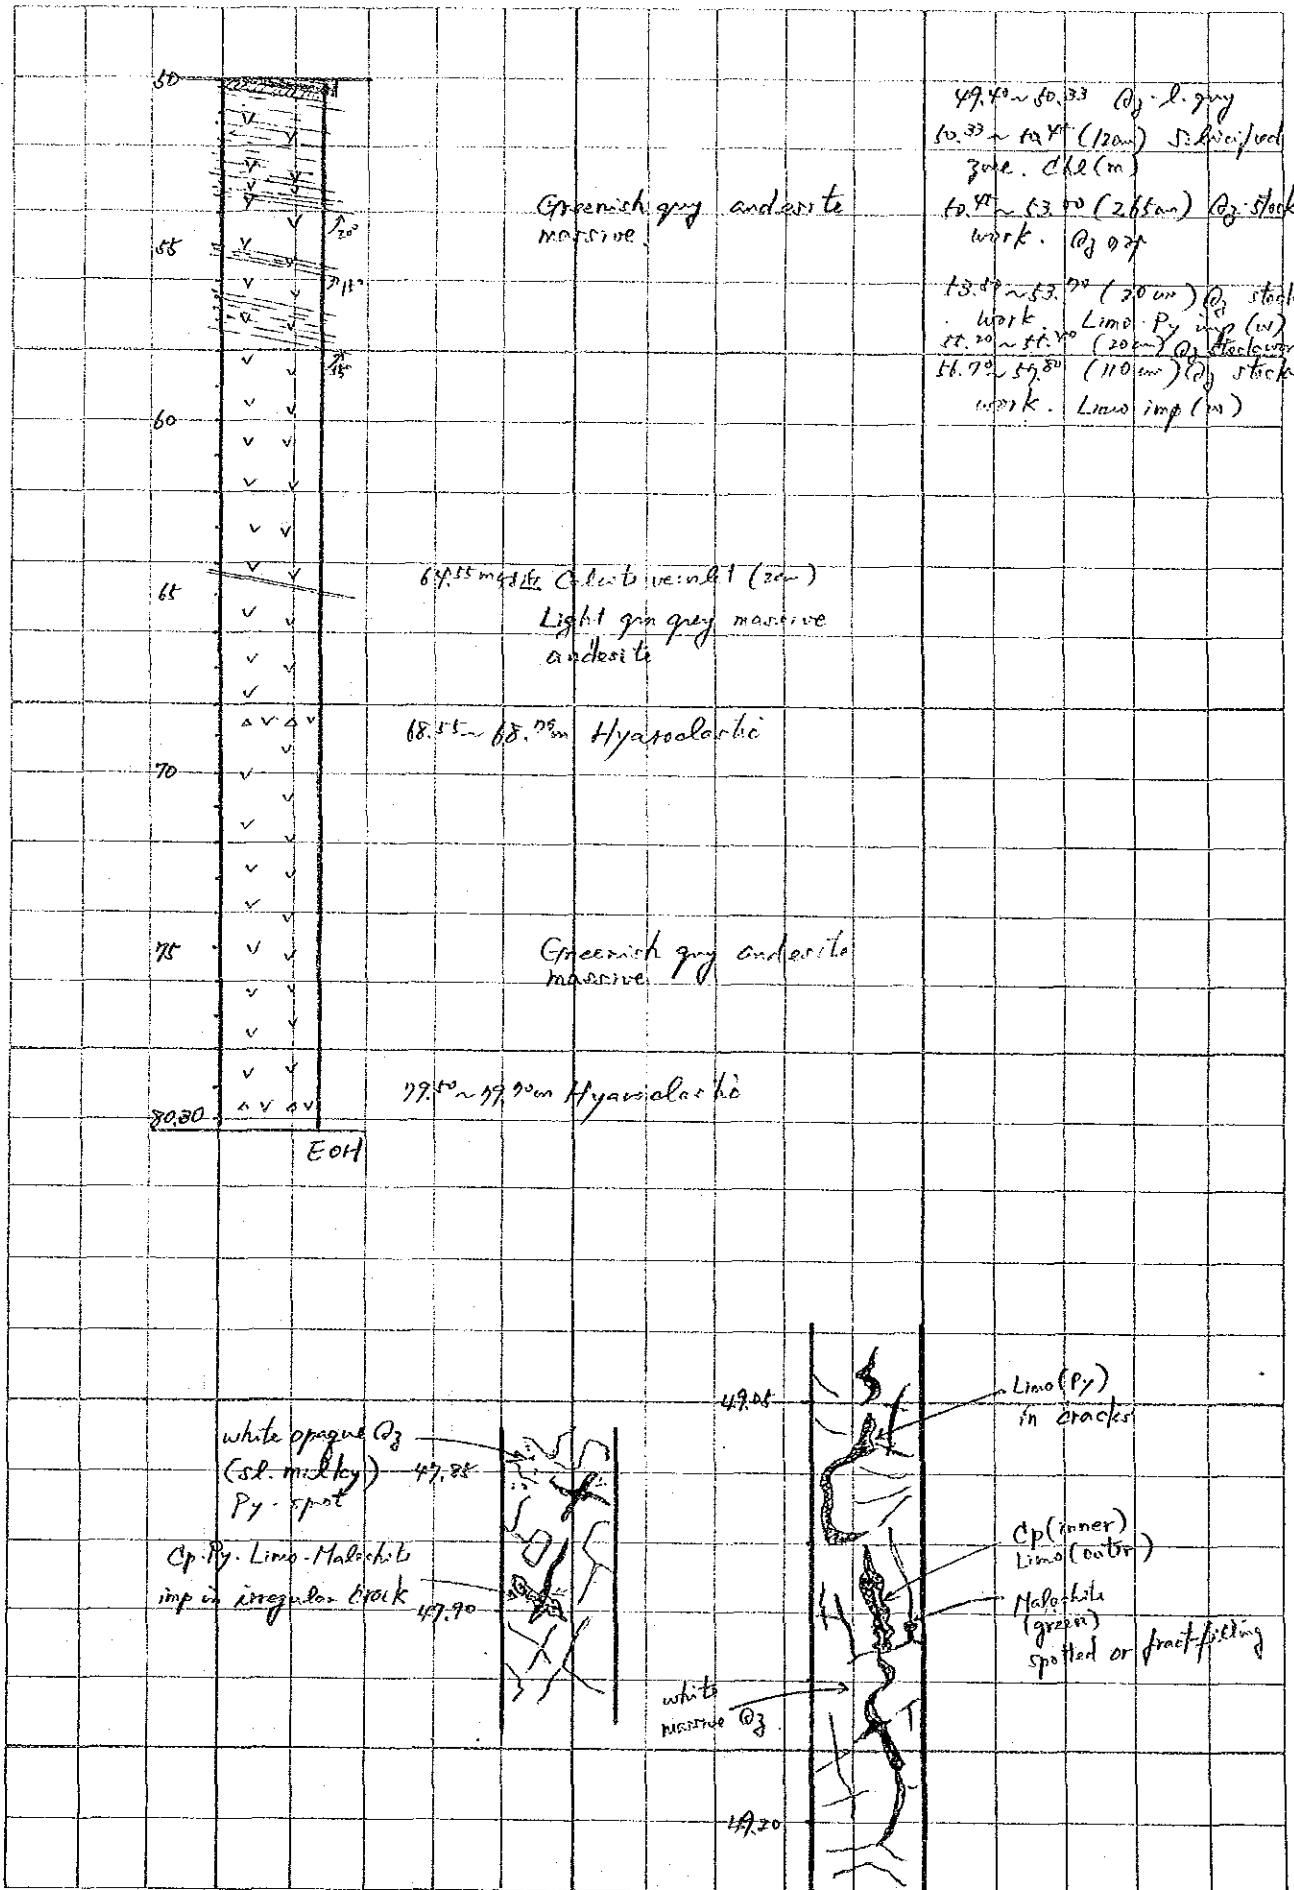 50
55
60
65
70
75
80.30
EOH
20°
15°
Greenish gray andesite
massive.
64.55 m Calcite veinlet (2cm)
Light grn grey massive
andesite
68.55~68.70m Hyaroclastic
Greenish gray andesite
massive
79.50~79.70m Hyaroclastic
49.40~50.33 Qz. l. gray
50.33~50.45 (12cm) Silicified
zone. Chl(m)
50.45~53.00 (265cm) Qz-stock
work. Qz
(20cm) Qz stock
work. Limo-Py imp (w)
(20cm) Qz stockwor
56.70~57.80 (110cm) Qz stock
work. Limo imp (w)
white opaque Qz
(sl. milky) 47.85
Py-spot
Cp-Py-Limo-Malachite
imp in irregular crack 47.90
49.05
Limo (Py)
in cracks
Cp (inner)
Limo (outer)
Malachite
(green)
spotted or fract-filling
white
massive Qz
49.20